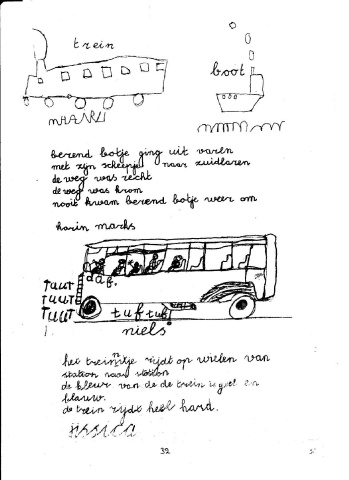 trein
boot
MAARTJ
berend botje ging uit varen
met zijn scheepje naar zuidlaren
de weg was recht
de weg was krom
nooit kwam berend botje weer om
karin marks
daf.
TUUT
TUUT
TUUT
tuf tuf
niels
het treintje rijdt op wielen van
station naar station
de kleur van de de trein is geel en
blauw.
de trein rijdt heel hard.
jessica
32